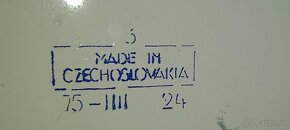 MADE IN
CZECHOSLOVAKIA
75-IIII 24